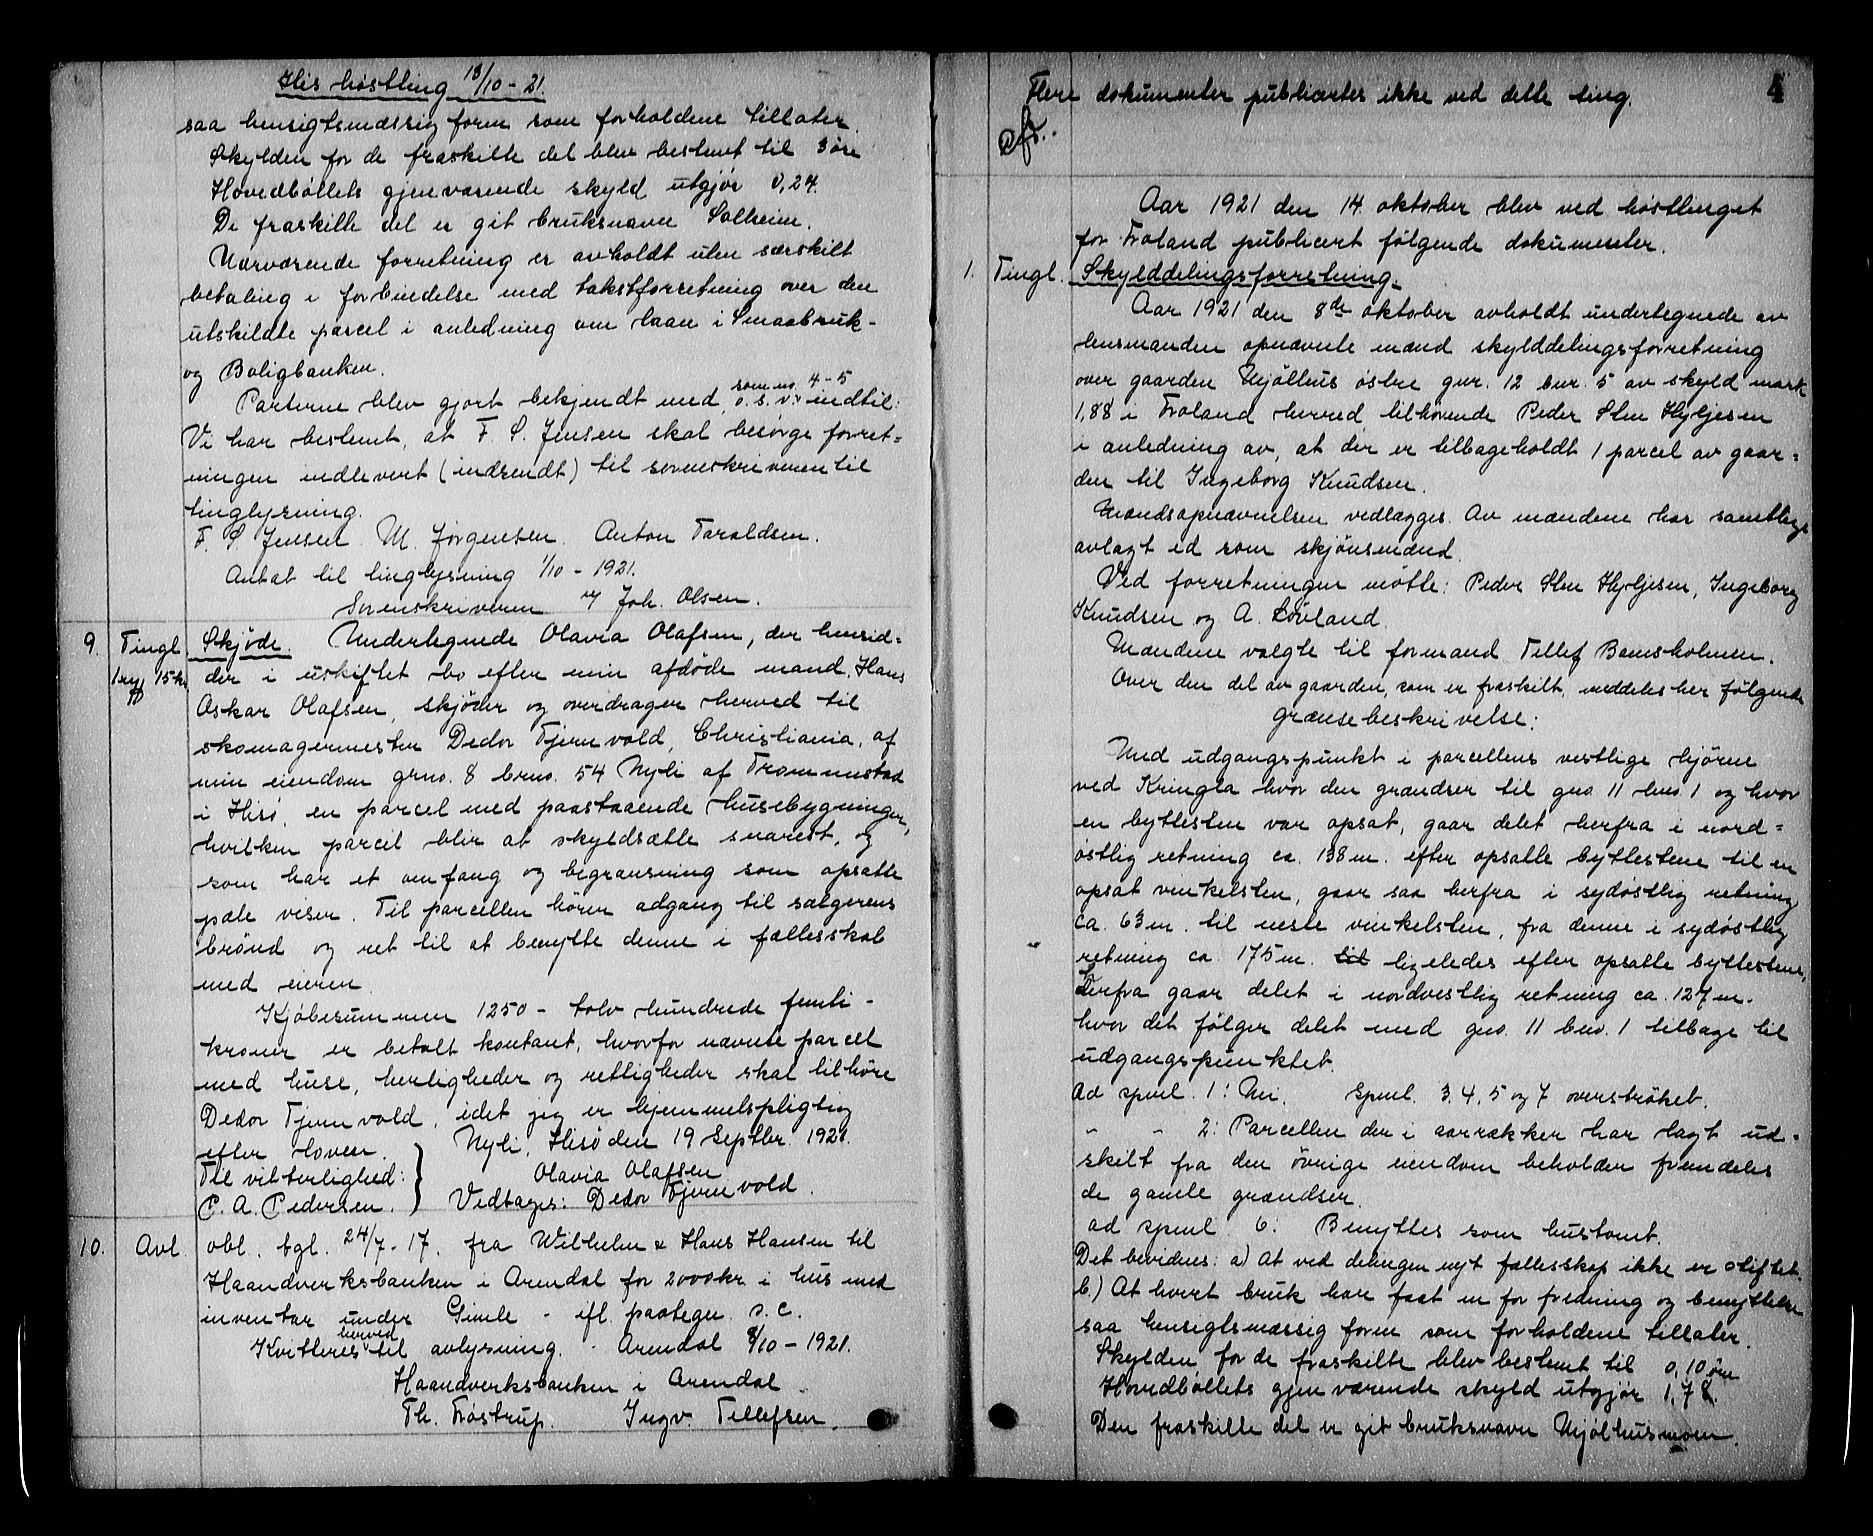 His høstting 13/10 - 21.
saa hensigtsmæssig form som forholdene tillater.
Skylden for de fraskilte del blev bestemt til 3 øre
Hovedbøllets gjenværende skyld utgjør 0,24.
De fraskilte del er git bruksnavn Solheim.
Nærværende forretning er avholdt uten særskilt
betaling i forbindelse med takstforretning over den
utskildte parcel i anledning om laan i Smaabruk-
og Boligbanken.
Parterne blev gjort bekjendt med, som no. 4-5 o.s.v. indtil:
Vi har bestemt, at F. S. Jensen skal besørge forret=
ningen indlevert (indsendt) til sorenskriveren til
tinglysning.
F. S. Jensen. M. Jørgensen. Anton Taraldsen.
Antat til tinglysning 1/10 - 1921.
Sorenskriveren v/ Joh. Olsen.
9. Tingl. Skjøde. Undertegnede Olavia Olafsen, der hensid=
15 kr. der i uskiftet bo efter min afdøde mand, Hans
Oskar Olafsen, skjøder og overdrager herved til
skomagermester Dedor Tjernvold, Christiania, af
min eiendom grno. 8 brno. 54 Nyli af Trommestad
i Hisø, en parcel med paastaaende husebygninger,
hvilken parcel blir at skyldsætte snarest, og
som har et omfang og begrænsning som opsatte
pæle viser. Til parcellen hører adgang til sælgerens
brønd og ret til at benytte denne i fællesskab
med eieren.
Kjøbesummen 1250 - tolv hundrede femti -
kroner er betalt kontant, hvorfor nævnte parcel
med huse, herligheder og rettigheder skal tilhøre
Dedor Tjernvold, idet jeg er hjemmelspligtig
efter loven. Nyli, Hisø den 19 Septbr. 1921.
Til vitterlighed: Olavia Olafsen
P. A. Pedersen. Vedtages: Dedor Tjernvold.
10. Avl. obl. tgl. 24/7 - 17. fra Wilhelm & Hans Hansen til
Haandverksbanken i Arendal for 2000 kr i hus med
inventar under Gimle - efl. paategn. s. c.
Kvitteres herved til avlysning. Arendal 8/10 - 1921.
Haandverksbanken i Arendal.
Th. Frøstrup. Ingv. Tellefsen.
4
Flere dokumenter publicertes ikke ved dette ting.
Aar 1921 den 14. oktober blev ved høsttinget
for Froland publicert følgende dokumenter.
1. Tingl. Skylddelingsforretning.
Aar 1921 den 8de oktober avholdt undertegnede av
lensmanden opnævnte mænd skylddelingsforretning
over gaarden Mjølhus østre gnr. 12 bnr. 5 av skyld mark
1,88 i Froland herred tilhørende Peder Sten Hyljesen
i anledning av, at der er tilbageholdt 1 parcel av gaar=
den til Ingeborg Knudsen.
Mændsopnævnelsen vedlægges. Av mændene har samtlige
avlagt ed som skjønsmænd.
Ved forretningen møtte: Peder Sten Hyljesen, Ingeborg
Knudsen og A. Løvland.
Mændene valgte til formand Tellef Bomsholmen.
Over den del av gaarden, som er fraskilt, meddeles her følgende
grænsebeskrivelse:
Med udgangspunkt i parcellens vestlige hjørne
ved Kringla hvor den grændser til gno. 11 bno. 1 og hvor
en byttesten var opsat, gaar delet herfra i nord=
østlig retning ca. 138 m. efter opsatte byttestene til en
opsat vinkelsten, gaar saa herfra i sydøstlig retning
ca. 63 m. til neste vinkelsten, fra denne i sydøstlig
retning ca. 175 m. til ligeledes efter opsatte byttestene,
Herfra gaar delet i nordvestlig retning ca. 127 m.
hvor det følger delet med gno. 11 bno. 1 tilbage til
udgangspunktet.
Ad spml. 1: Nei. Spml. 3, 4, 5 og 7 overstrøket.
" " 2: Parcellen der i aarrækker har lagt ud=
skilt fra den øvrige eiendom beholder fremdeles
de gamle grændser.
ad spml. 6: Benyttes som hustomt.
Det bevidnes: a) At ved delingen nyt fællesskap ikke er stiftet.
b.) At hvert bruk har faat en for fredning og benyttelse
saa hensigtsmæssig form som forholdene tillater.
Skylden for de fraskilte blev bestemt til 0,10 øre
Hovedbøllets gjenværende skyld utgjør 1,78.
Den fraskilte del er git bruksnavn Mjølhusmoen.